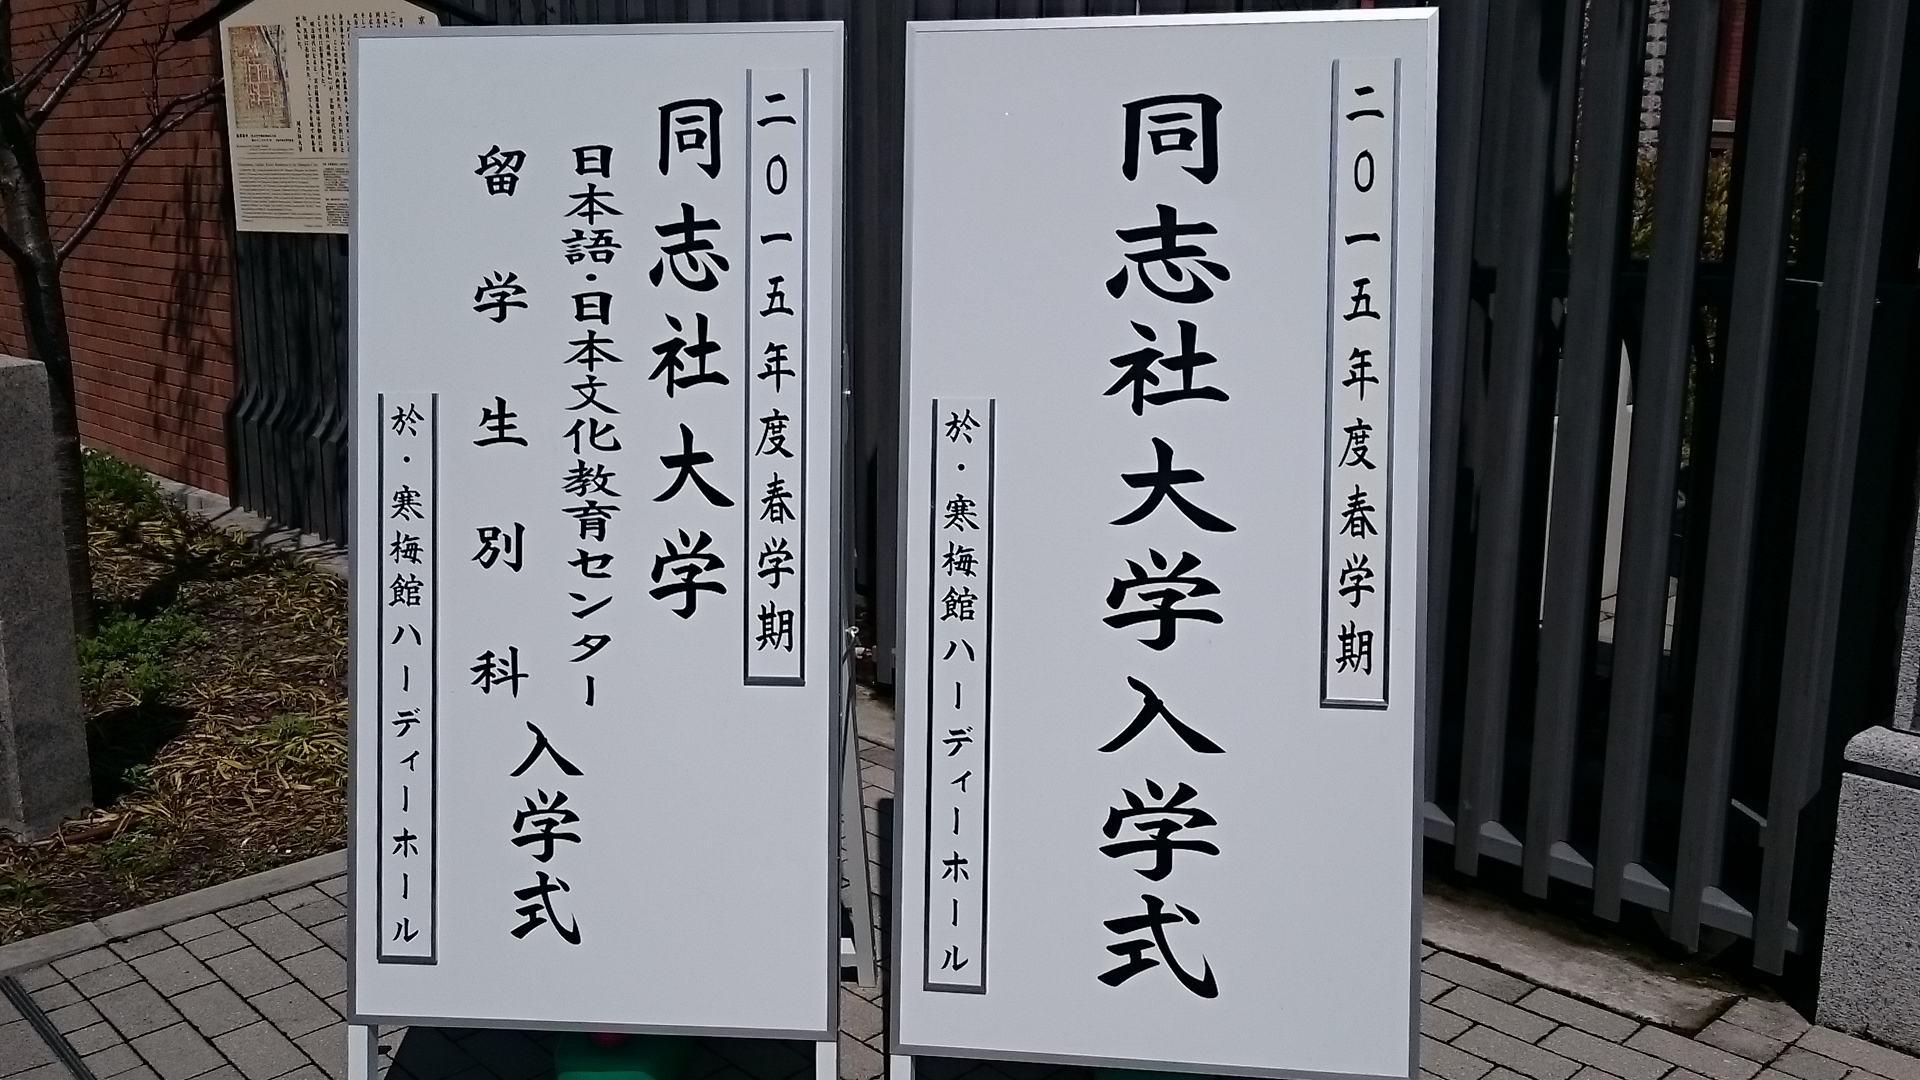 二〇一五年度春学期
同志社大学入学式
於・寒梅館ハーディーホール
二〇一五年度春学期
同志社大学
日本語・日本文化教育センター
留学生別科
入学式
於・寒梅館ハーディーホール